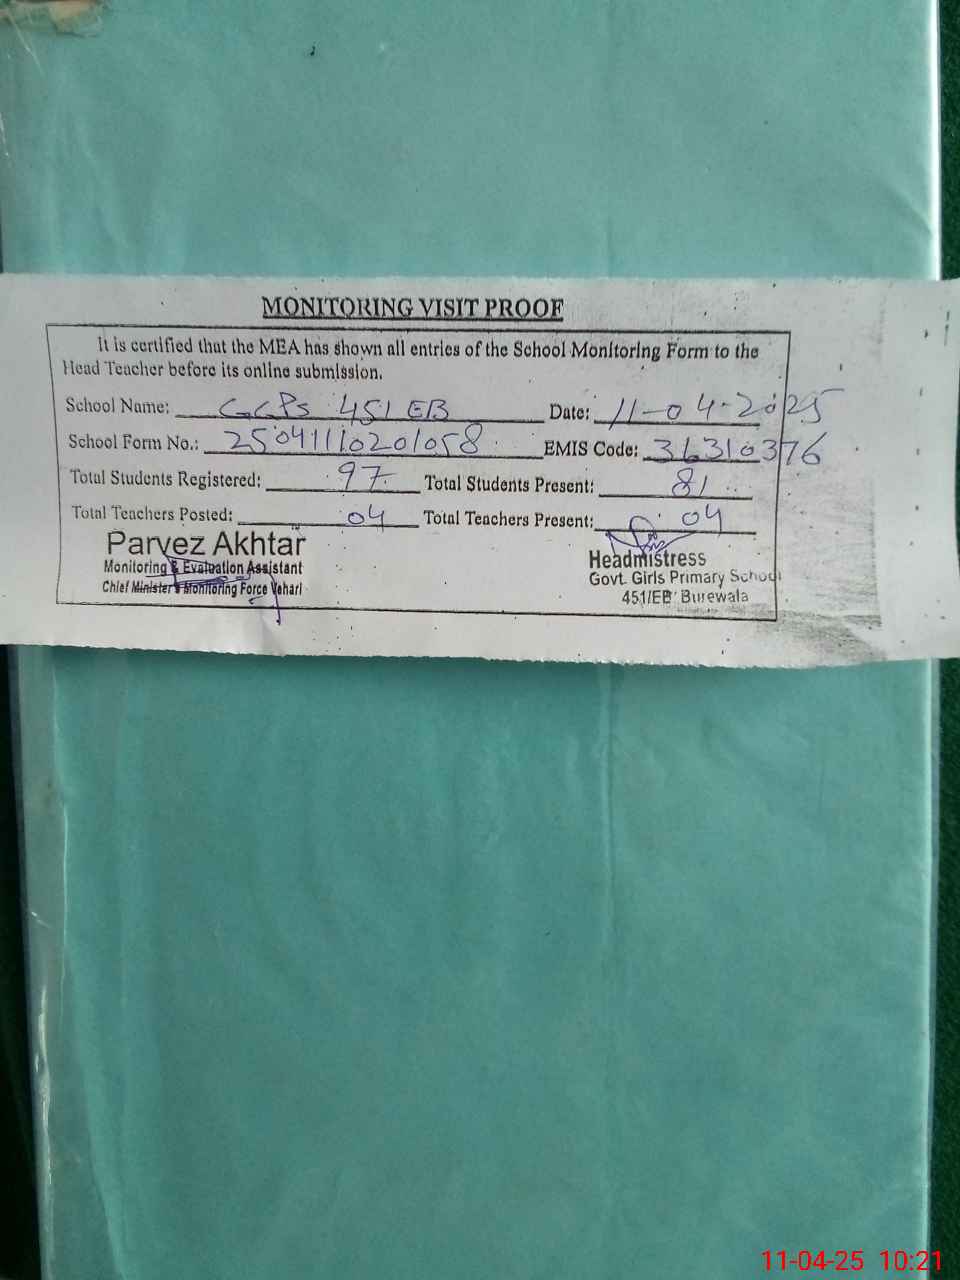 MONITORING VISIT PROOF
It is certified that the MEA has shown all entries of the School Monitoring Form to the
Head Teacher before its online submission.
School Name: GGPS 451 EB Date: 11-04-2025
School Form No.: 25041110201058 EMIS Code: 36310376
Total Students Registered: 97 Total Students Present: 81
Total Teachers Posted: 04 Total Teachers Present: 04
Parvez Akhtar
Monitoring & Evaluation Assistant
Chief Minister's Monitoring Force Vehari
Headmistress
Govt. Girls Primary School
451/EB Burewala
11-04-25 10:21